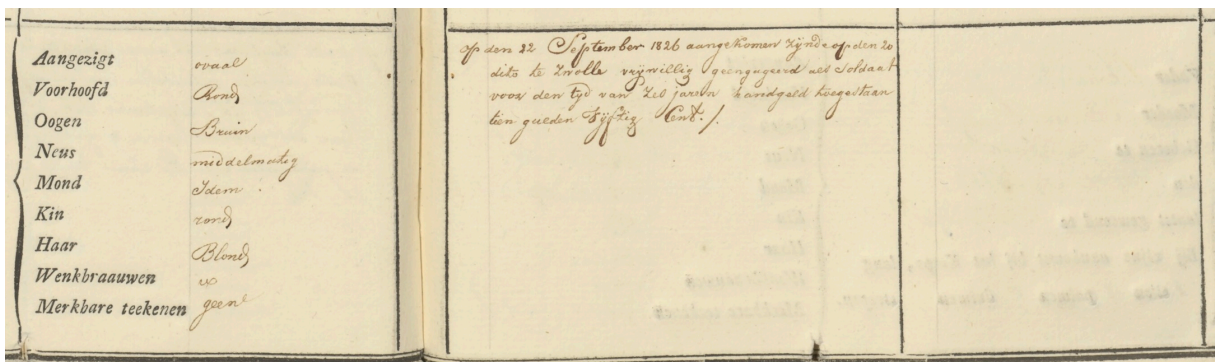 Aangezigt ovaal
Voorhoofd Rond
Oogen Bruin
Neus middelmatig
Mond Idem
Kin rond
Haar Blond
Wenkbraauwen
Merkbare teekenen geene
Op den 22 September 1826 aangekomen zijnde op den 20
dito te Zwolle vrijwillig geengageerd als Soldaat
voor den tyd van Zes jaren handgeld toegestaan
tien gulden Vijftig Cent. /.